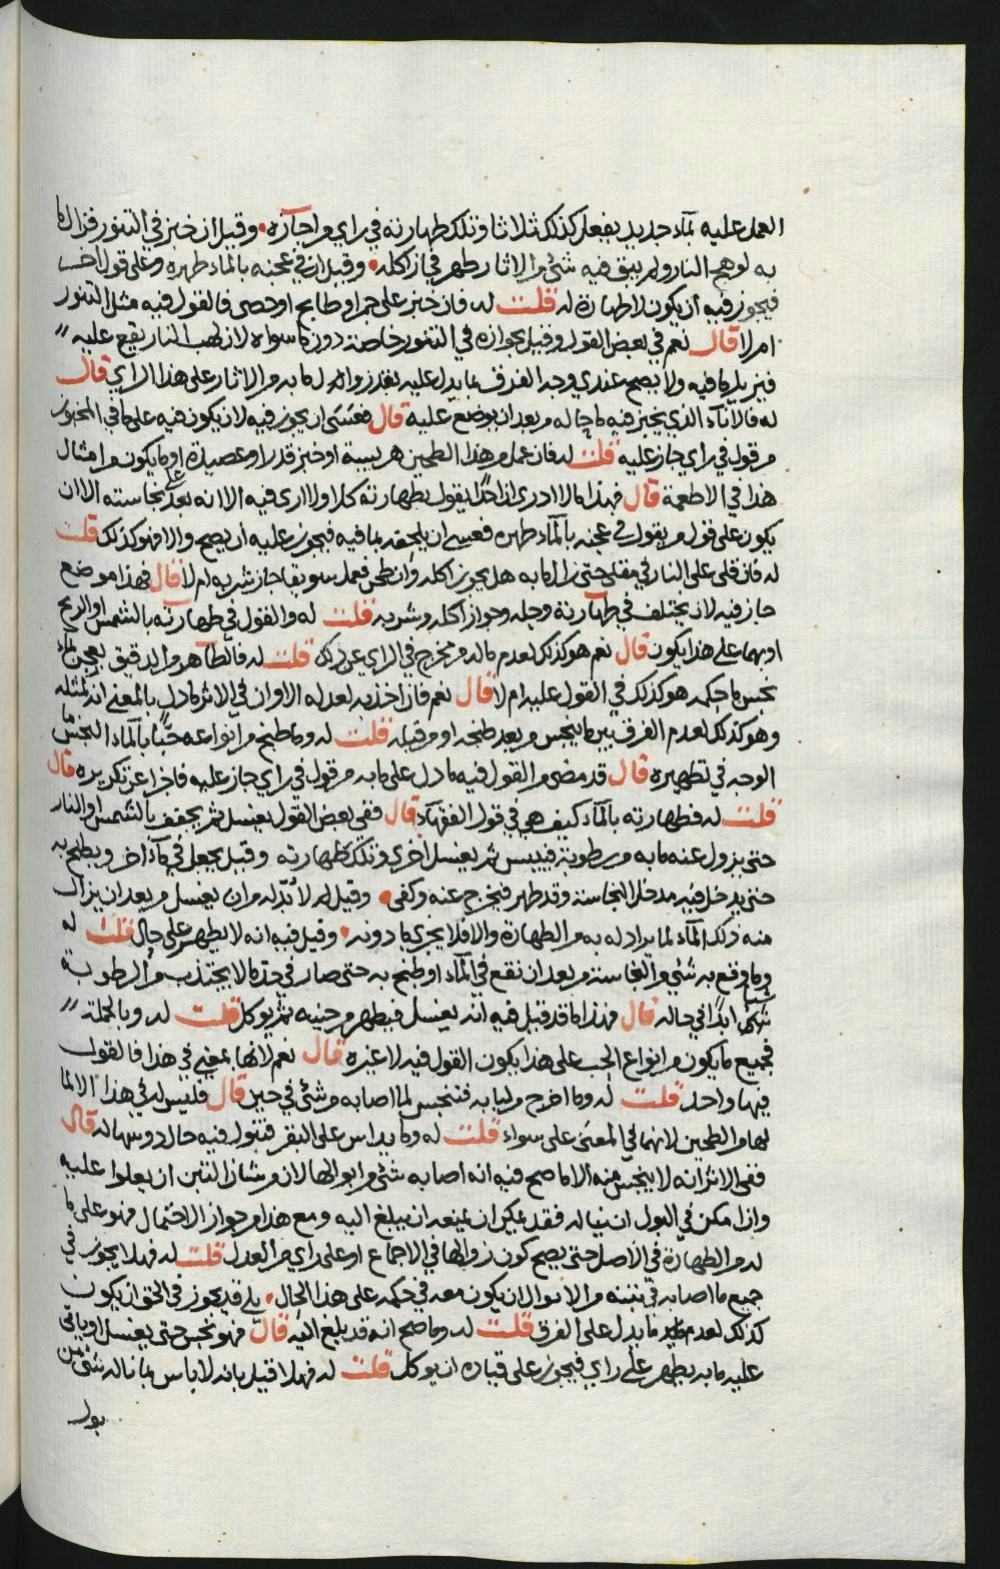 العمل عليه بمآء جديد يفعل كذلك ثلاثا وتلك طهارته في راي من اجازه وقيل ان خبز في التنور فزال ما
به لوهج النار ولم يبق فيه شيء من الاثار طهر فجاز اكله وقيل ان في عجنه بالماء طهره وعلى قول اخر
فيجوز فيه ان يكون لا طهارة له قلت له فان خبز على جمر او طابج او حصى فالقول فيه مثل التنور
ام لا قال نعم في بعض القول وقيل بجوازه في التنور خاصة دون ما سواه لان لهب النار يقع عليه
فيزيل ما فيه ولا يصح عندي وجه الفرق بما يدل عليه بعد زوال ما به من الاثار على هذا الراي قال
له فالاناء الذي يخبز فيه ما حاله من بعد ان يوضع عليه قال فعسى ان يجوز فيه لان يكون فيه على ما في المخبوز
من قول في راي جاز عليه قلت له فان عمل من هذا الطحين هريسة او خبز قدر او عصيدة او ما يكون من امثال
هذا في الاطعمة قال فهذا ما لا ادري ان احدا يقول بطهارته كلا ولا ارى فيه الا انه بعد على نجاسته الا ان
يكون على قول من يقول في عجنه بالمآء طهره فعسى ان يلحقه بما فيه فيجوز عليه ان يصح والا فهو كذلك قلت
له فان قلي على النار في مقلى حتى زال ما به هل يجوز اكله وان طحن فعمل سويقا جاز شربه ام لا قال فهذا موضع
جاز فيه لان يختلف في طهارته وحله وجواز اكله وشربه قلت له والقول في طهارته بالشمس او الريح
او بهما على هذا يكون قال نعم هو كذلك لعدم ما له من مخرج في الراي عن ذلك قلت له فالطاهر من الدقيق يعجن بماء
نجس ما حكمه هو كذلك في القول عليه ام لا قال نعم فان اخذ به لعدله الا وان في الاثر ما دل بالمعنى انه لمثله
وهو كذلك لعدم الفرق بين ما ينجس من بعد طبخه او من قبله قلت له وما طبخ من انواعه حبّا بالمآء النجس ما
الوجه في تطهيره قال قد مضى من القول فيه ما دل على ما به من قول في راي جاز عليه فاذا عن تكريره قال
قلت له فطهارته بالمآء كيف هي في قول الفقهاء قال ففي بعض القول يغسل ثم يجفف بالشمس او النار
حتى يزول عنه ما به من رطوبة فييبس ثم يغسل اخرى وتلك طهارته وقيل يجعل في مآء اخر ويطبخ به
حتى يدخل فيه مدخل النجاسة وقد طهر فيخرج عنه وكفى وقيل له لا بدّ له من ان يغسل من بعد ان يزال
منه ذلك المآء لما يراد له به من الطهارة والا فلا يجزي ما دونه وقيل فيه انه لا يطهر على حال قلت له
وما وقع به شيء من النجاسة من بعد ان نقع في المآء او طبخ به حتى صار في حد ما لا يجتذب من الرطوبة
شيئا ابدا في حاله قال فهذا ما قد قيل فيه انه يغسل فيطهر من حينه ثم يوكل قلت له وبالجملة
فجميع ما يكون من انواع الحب على هذا يكون القول فيه لا غيره قال نعم لانها بمعنى في هذا فالقول
فيها واحد قلت له وما اخرج من لبابه فتنجس لما اصابه من شيء في حين قال فليس له في هذا الا ما
لها من الطحين لانهما في المعنى على سواء قلت له وما يداس على البقر فتبول فيه حال دوسها له قال
ففي الاثر انه لا ينجس منه الا ما صح فيه انه اصابه شيء من ابوالها لان من شان التبن ان يعلوا عليه
واذا مكن في البول ان يناله فقد يمكن ان يمنعه ان يبلغ اليه ومع هذا من جواز الاحتمال فهو على ما
له من الطهارة في الاصل حتى يصح كون زوالها في الاجماع او على راي من العدل قلت له فهلا يجوز في
جميع ما اصابه في تبنه من الابوال ان يكون معه في حكمه على هذا الحال بلى قد يجوز في الحق ان يكون
كذلك لعدم ما يدل على الفرق قلت له وما صح انه قد بلغ اليه قال فهو نجس حتى يغسل او ياتي
عليه ما به يطهر على راي فيجوز على قياده ان يوكل قلت له فهلا قيل بانه لا باس بما ناله شيء من
بول